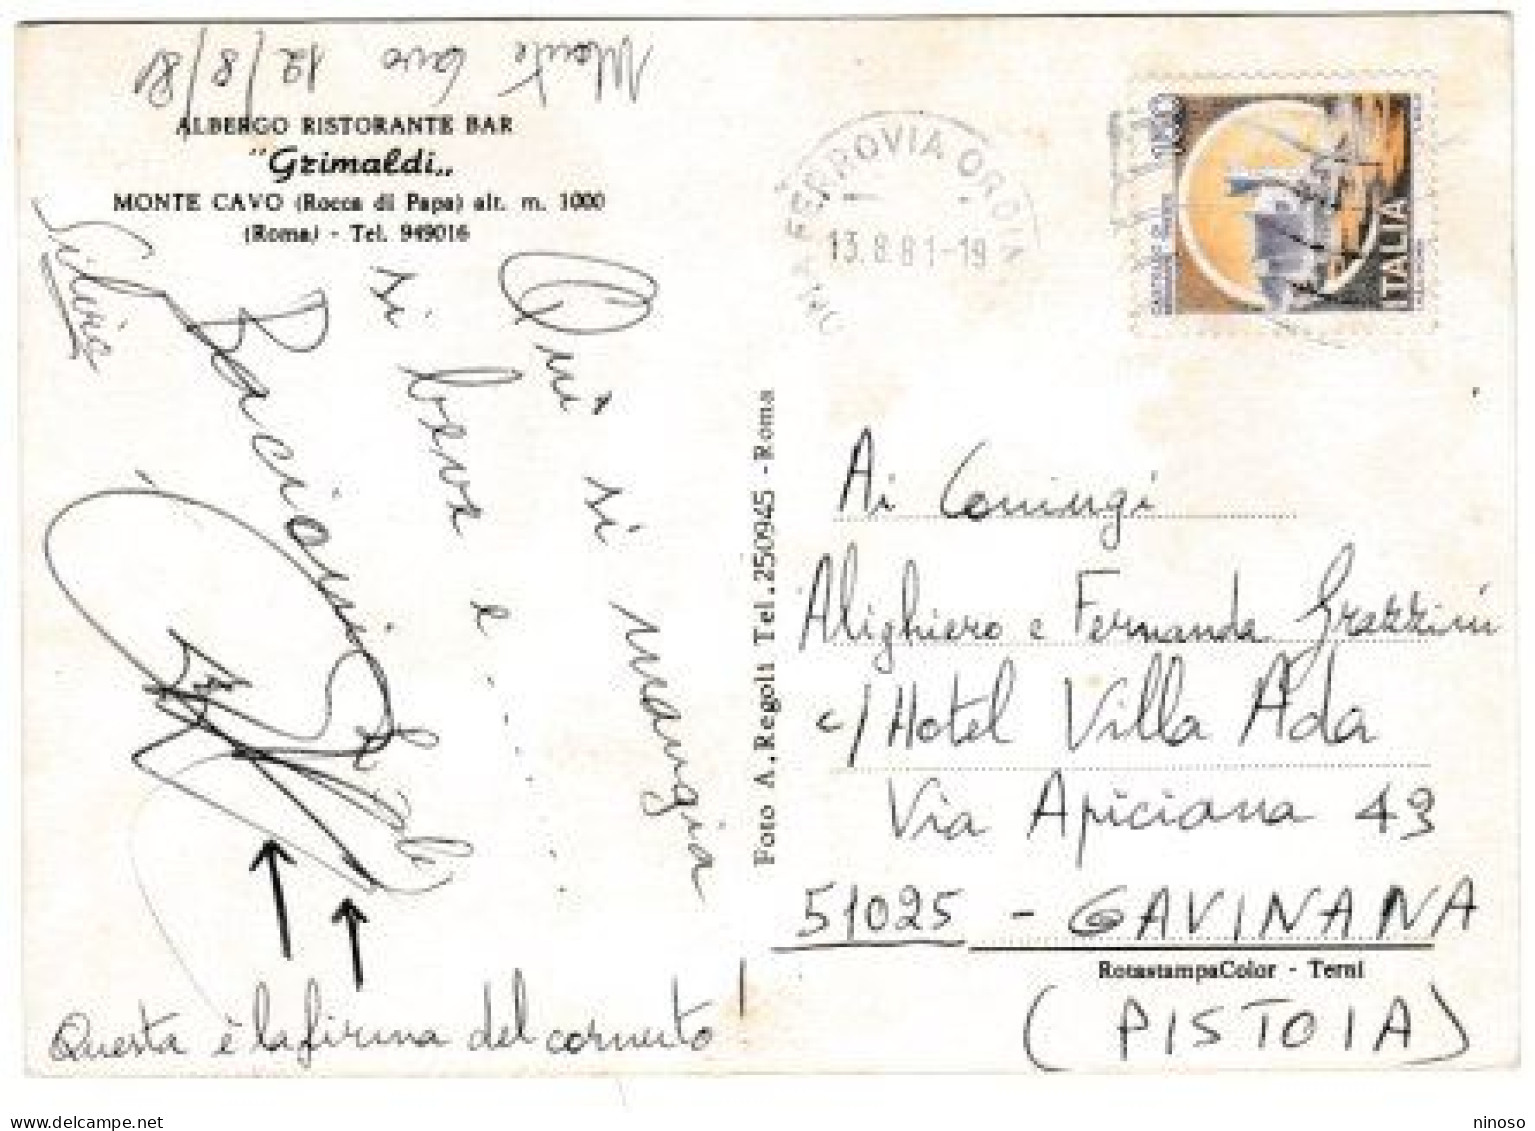 Monte Cavo 12/8/81
ALBERGO RISTORANTE BAR
"Grimaldi„
MONTE CAVO (Rocca di Papa) alt. m. 1000
(Roma) - Tel. 949016
Qui si mangia
si beve e ......
Bacioni
Silvia
Questa è la firma del cornuto!
Foto A. Regoli Tel. 250945 - Roma
ROMA FERROVIA ORDIN
13.8.81-19
ITALIA
Ai Coniugi
Alighiero e Fernanda Grazzini
c/ Hotel Villa Ada
Via Apiciana 43
51025 - GAVINANA
RotastampaColor - Terni
(PISTOIA)
delcampe.net
ninoso